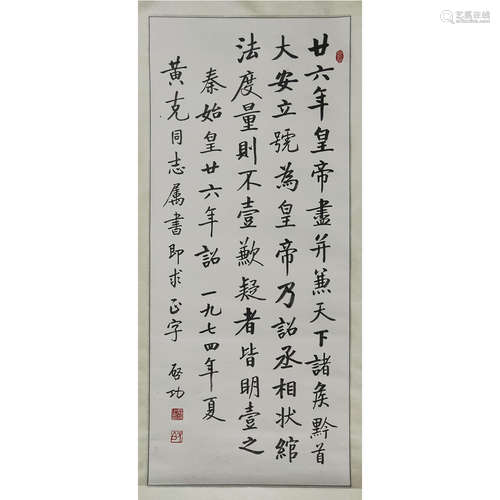 廿六年皇帝盡并兼天下諸矦黔首
大安立號為皇帝乃詔丞相狀綰
法度量則不壹歉疑者皆明壹之
秦始皇廿六年詔 一九七四年夏
黄克同志属書即求正字 啓功